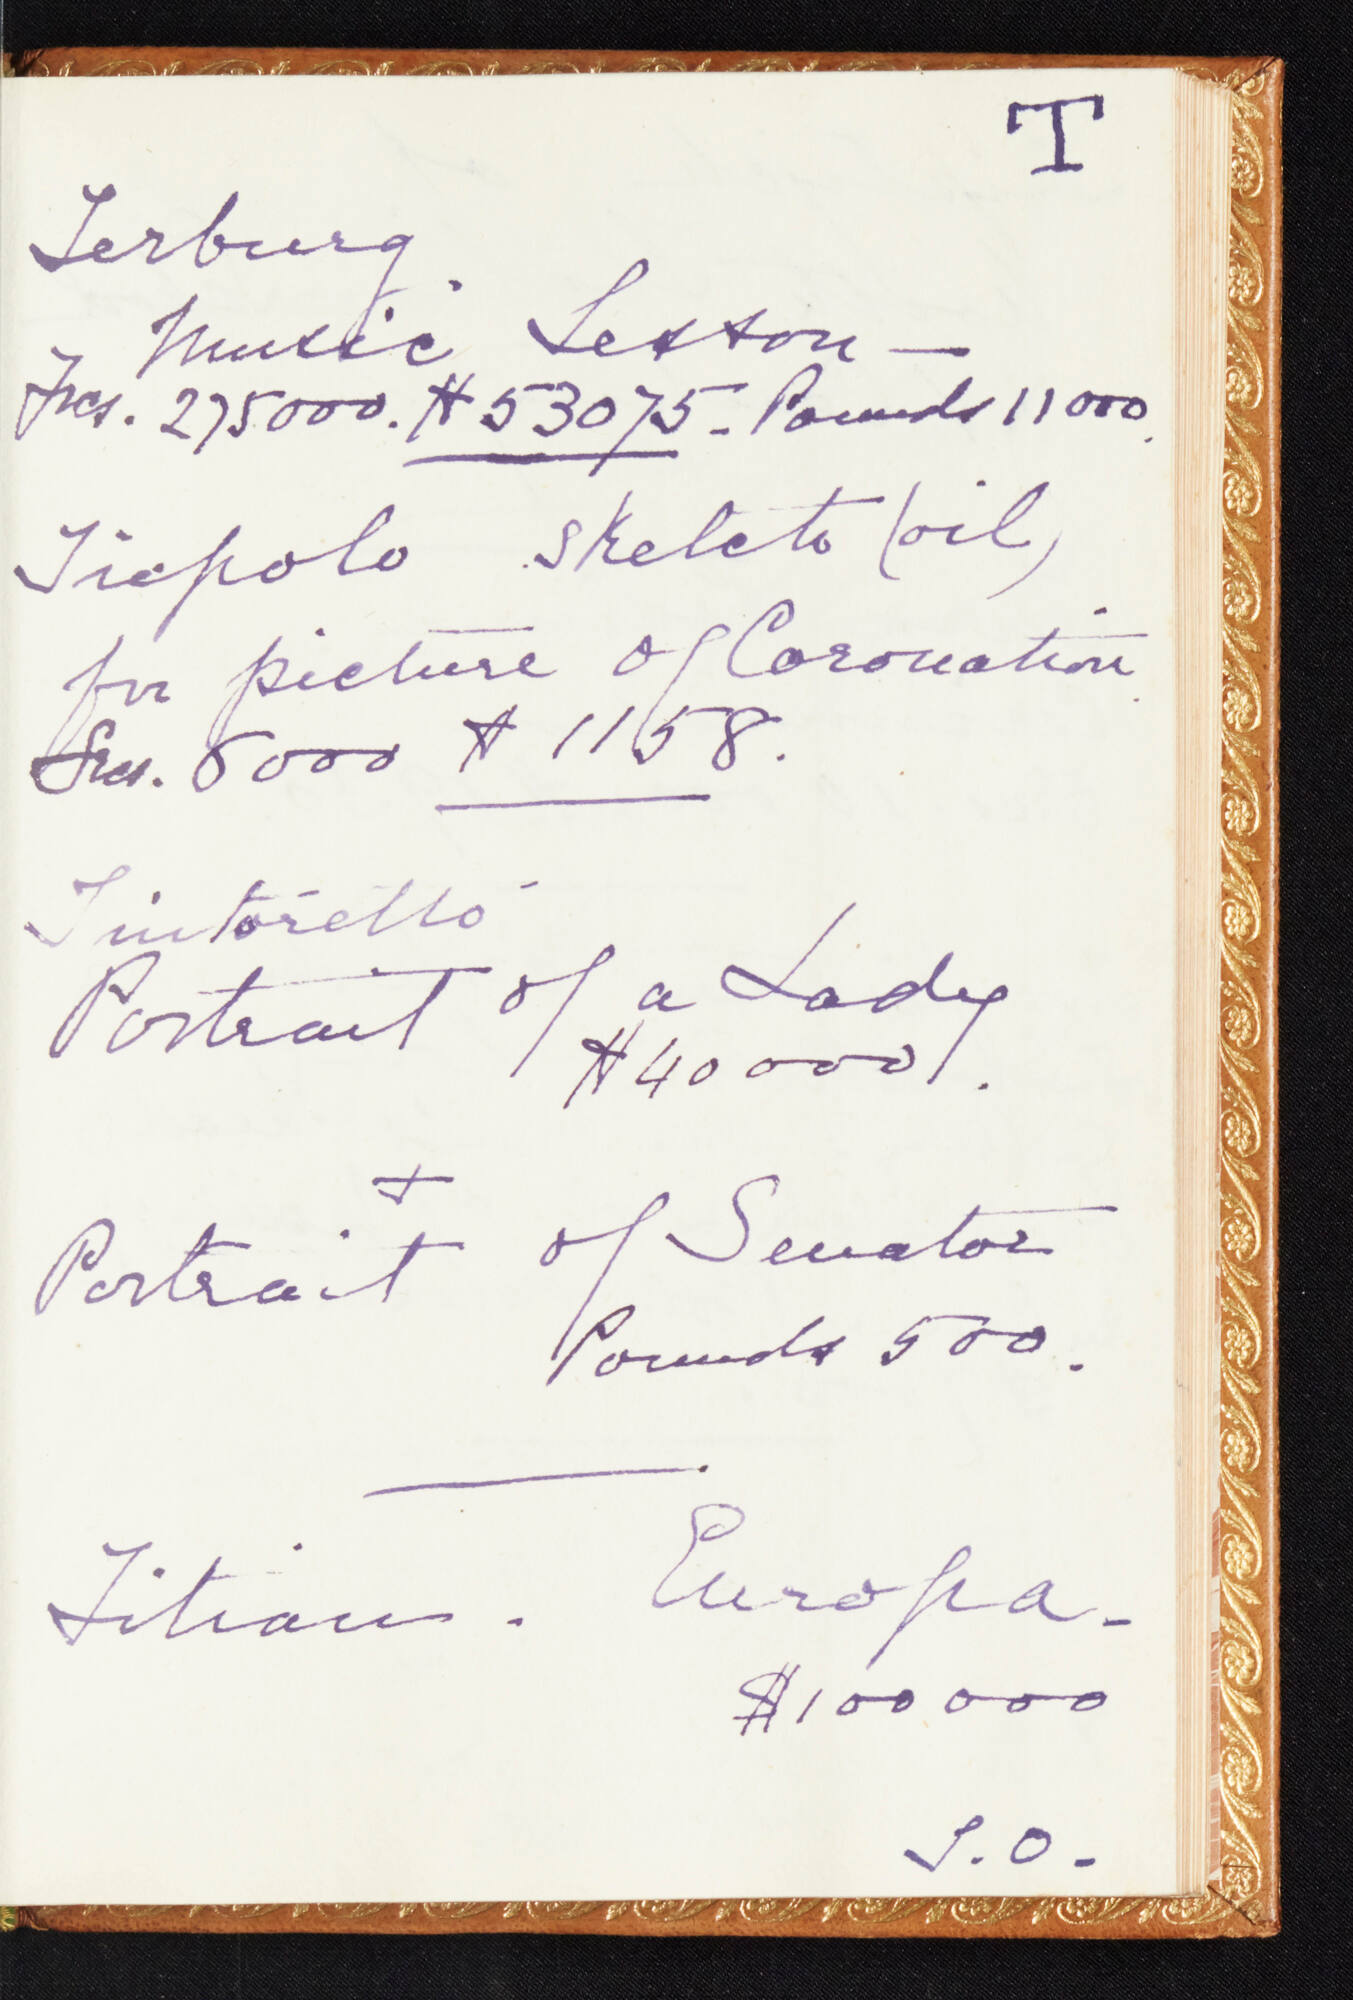 T
Terburg.
Music Lesson —
Frcs. 275000. $53075 - Pounds 11000.
Tiepolo sketch (oil)
for picture of Coronation.
Frcs. 6000 $ 1158.
Tintoretto
Portrait of a Lady
$40000.
+
Portrait of Senator
Pounds 500.
Titian. Europa -
$100000
T.O.-